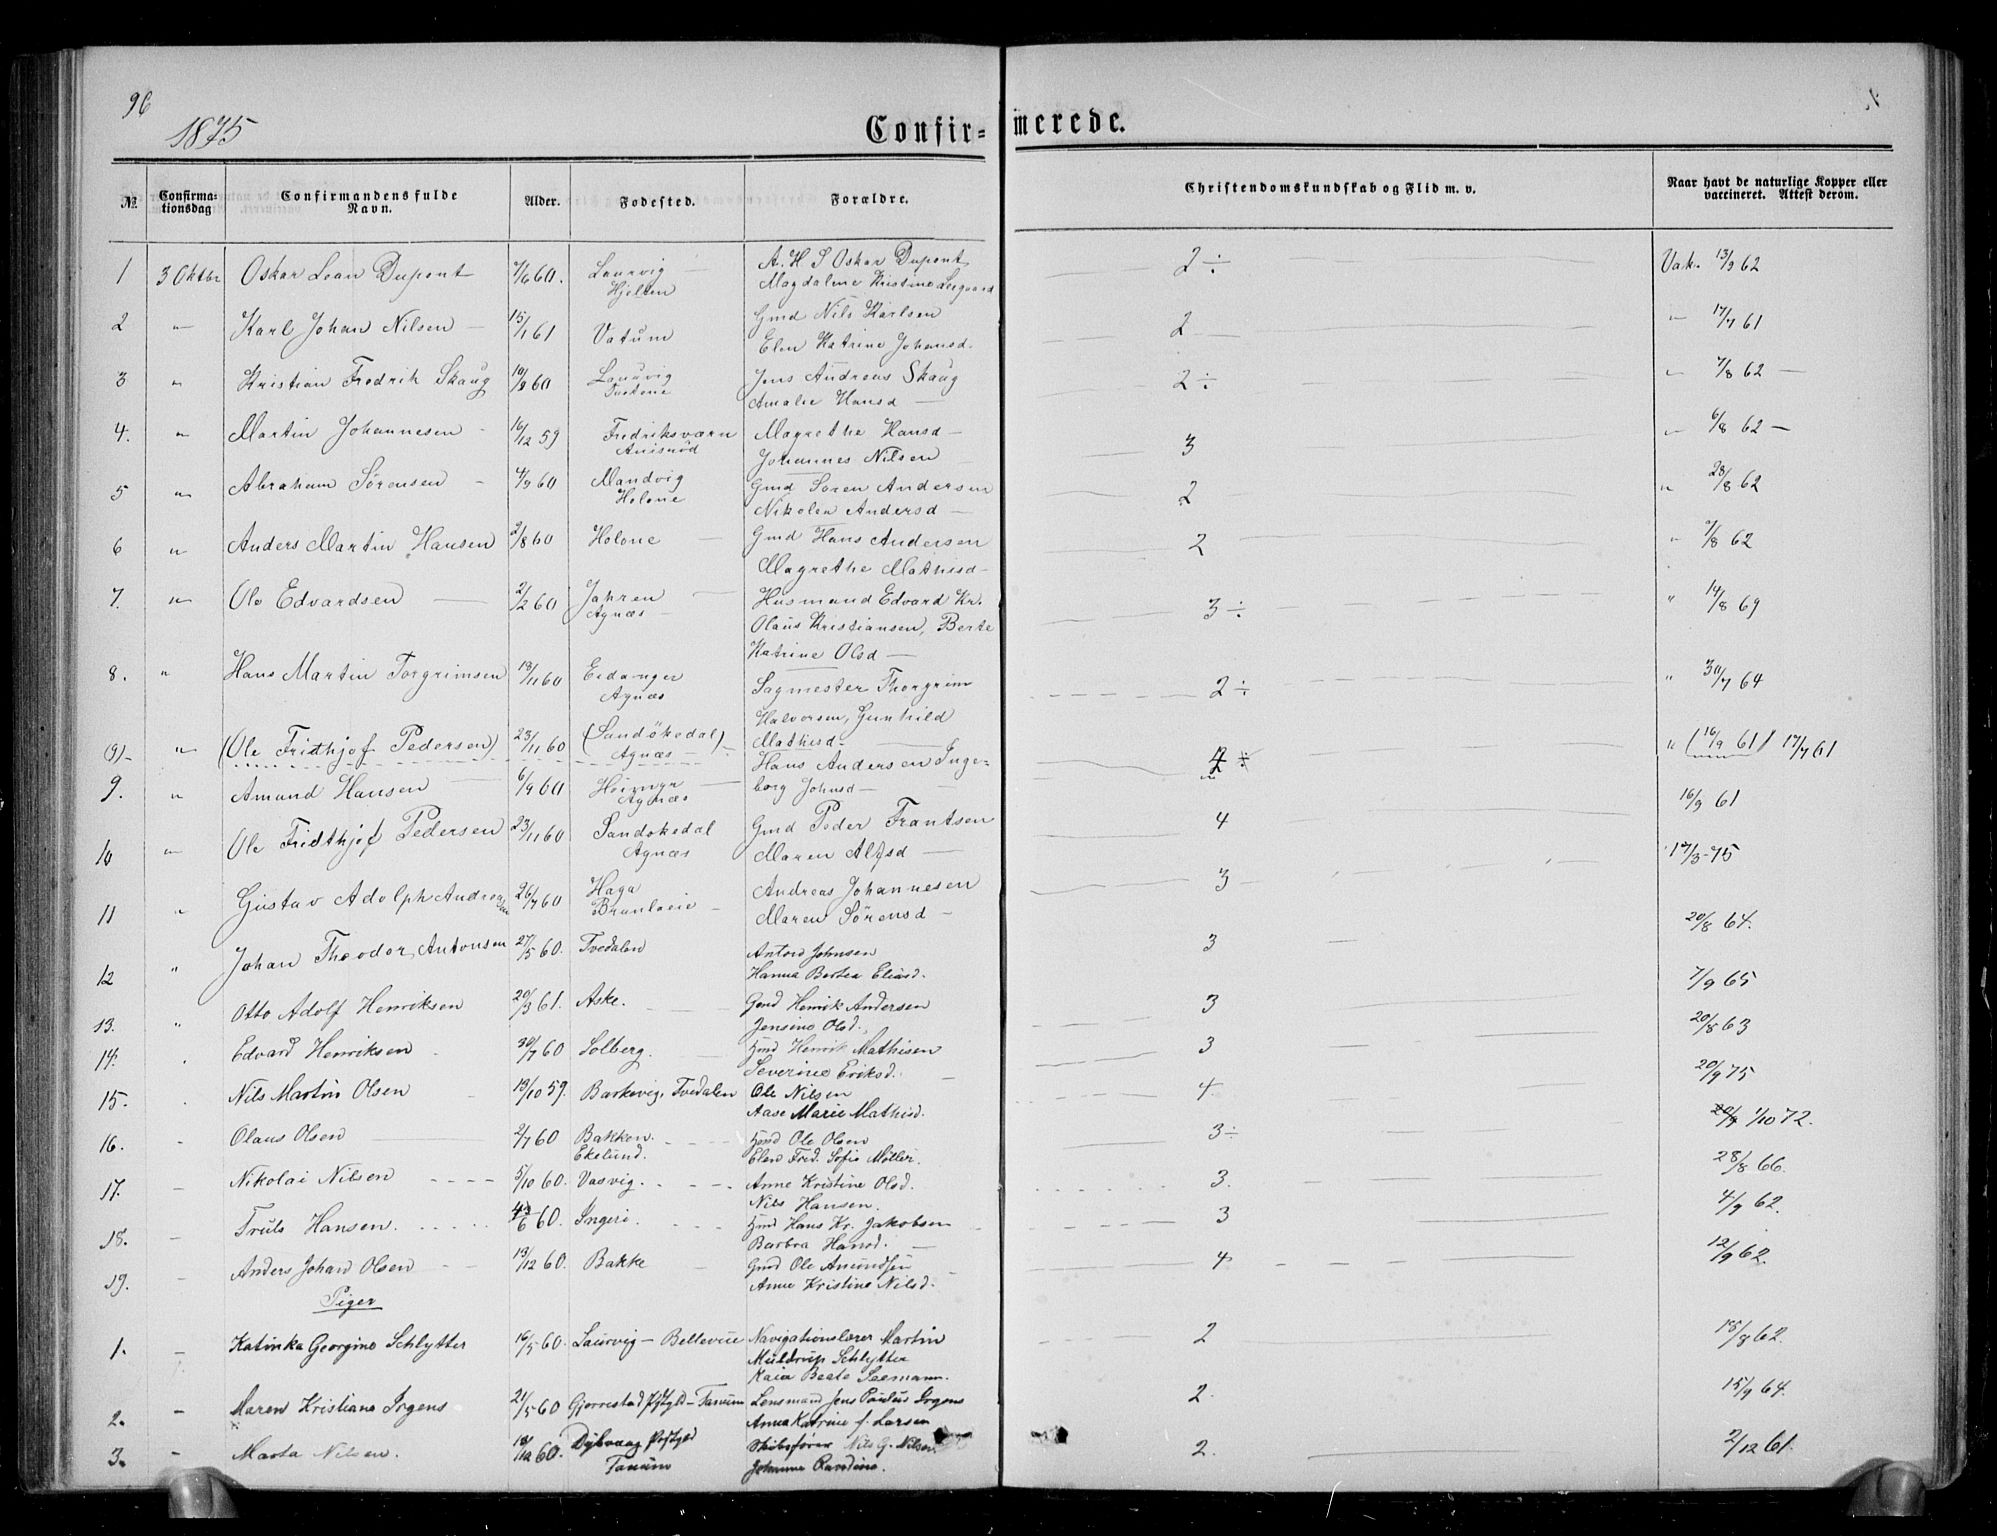 96
1875
Confir- merede.
№ Confirma-tionsdag Confirmandens fulde Navn. Alder. Fødested. Forældre. Christendomskundskab og Flid m. v. Naar havt de naturlige Kopper eller vaccineret. Attest derom.
1 3 Oktbr Oskar Leon Dupont 7/6 60. Laurvig A. H S Oskar Dupont 2 ÷ Vak. 13/9 62
Magdalene Kristine
2 " Karl Johan Nilsen — 15/1 61 Vatum Gmd Nils Karlsen 2 " 17/7 61
Elen Katrine Johansd.
3 " Kristian Fredrik Skaug 10/9 60 Laurvig Jens Andreas Skaug 2 ÷ " 7/8 62 —
Amalie Hansd —
4. " Martin Johannesen - 16/12 59 Fredriksværn Magrethe Hansd — 3 " 6/8 62 —
Johannes Nilsen
5 " Abraham Sørensen - 4/9 60 Mandvig Gmd Søren Andersen 2 " 23/8 62
Holone Nikolea Andersd —
6 " Anders Martin Hansen 2/8 60 Holone — Gmd Hans Andersen 2 " 7/8 62
Magrethe Mathisd —
7. " Ole Edvardsen — 2/2 60 Jahren — Husmand Edvard Kr. 3 ÷ " 14/8 69
Agnæs — Olaus Kristiansen, Berte
Katrine Olsd —
8. " Hans Martin Torgrimsen 13/11 60 Eidanger Sagmester Thorgrim 2 ÷ " 30/7 64
Agnæs Halvorsen, Gunhild
(9) - " (Ole Fridthjof Pedersen) 23/11 60 (Sandökedal) Mathisd — " (16/9 61) 17/7 61
Agnæs —
9. " Amund Hansen — 6/9 60 Hans Andersen Inge- 16/9 61
Agnæs borg Johnsd — 4
10 " Ole Fridthjof Pedersen 23/11 60 Sandøkedal Gmd Peder Frantsen 17/3-75
Agnæs Maren Alfsd —
11 " Gustav Adolph Andreassen 26/7 60 Haga Andreas Johannesen 3 — 20/8 64.
Maren Sørensd —
12 " Johan Theodor Antonsen 27/5 60. Tvedalen Anton Johnsen 3 7/9 65
Hanna Bertea Eliasd.
13. " Otto Adolf Henriksen 20/3 61. Aske. Gmd Henrik Andersen 3 20/8 63
Jensine Olsd.
14. Edvard Henriksen 30/7 60 Solberg. Henrik Mathisen 3 20/9 75
Severine Eriksd.
15. Nils Martin Olsen 13/10 59. Barkevig, Tvedalen Ole Nilsen 4. 1/10 72.
Aase Marie Mathisd.
16. - Olaus Olsen 2/7 60 Bakken. Ole Olsen 3 ÷ 28/8 66.
Ekelund. Elen Fred. Sofie Møller.
17. - Nikolai Nilsen 5/10 60. Vasvig. Anne Kristine Olsd. 3. 4/9 62.
Nils Hansen.
18. - Truls Hansen. 60. Ingeri. Hans Kr. Jakobsen 3 12/9 62.
Barbra Hansd.
19. - Anders Johan Olsen 13/12 60. Bakke Gmd Ole Amundsen 4
Anne Kristine Nilsd.
Piger
1. - Katinka Georgine Schlytter 16/5 60. Laurvig — Bellevue Navigationslærer Martin 2 18/8 62.
Muldrup Schlytter
Kaia Beate Seemann.
2. - Maren Kristiane Irgens 21/5 60 Gjerrestad Pstgld - Tanum Lensmand Jens Paulus Irgens 2. 15/9 64.
Anna Katrine f. Larsen
3. - Marta Nilsen. 18/12 60. Dybvaag Pstgld Skibsfører Nils G. Nilsen. 2. 2/12 61.
Tanum Johanne